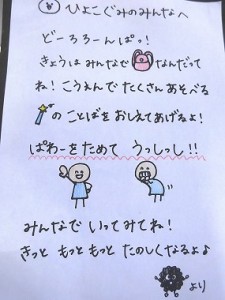 ひよこぐみのみんなへ
どーろろーんぱっ!
きょうは みんなで なんだって
ね! こうえんで たくさん あそべる
の ことばを おしえてあげるよ!
ぱわーをためて うっしっし!!
みんなで いってみてね!
きっと もっと もっと たのしくなるよよ
より